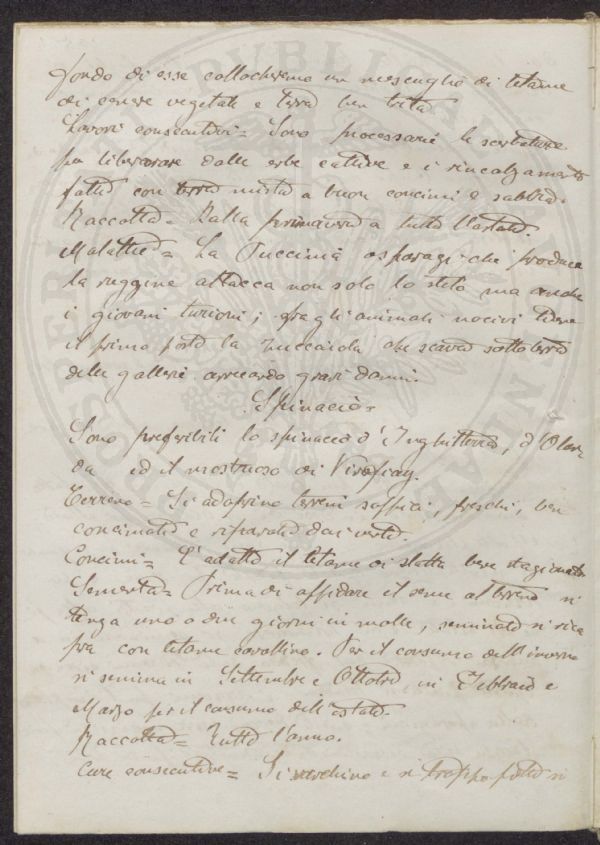 fondo di esse collocheremo un mescuglio di letame
di cenere vegetale e terra ben trita
Lavori consecutivi = Sono necessarie le serbature
per liberarare dalle erbe cattive e i rincalzamenti
fatti con terra mista a buon concimi e sabbia.
Raccolta = Dalla primavera a tutto l'estate.
Malattie = La Puccinia asparagi che produce
la ruggine attacca non solo lo stelo ma anche
i giovani turioni; fra gli animali nocivi tiene
il primo posto la zuccaiola che scava sottoterra
delle gallerie arrecando gravi danni.
Spinacio =
Sono preferibili lo spinacio d'Inghilterra, d'Olan
da ed il mostruoso di Viroflay.
Terreno = Si adoprino terreni soffici, freschi, ben
concimati e riparati dai venti.
Concimi = E' adatto il letame di stalla bene stagionato
Sementa = Prima di affidare il seme al terreno si
tenga uno o due giorni in molle, seminato si rico
pra con letame cavallino. Per il consumo dell'inverno
si semina in Settembre e Ottobre, in Febbraio e
Marzo per il consumo dell'estate.
Raccolta = Tutto l'anno.
Cure consecutive = Si sarchino e si troppo fitti si
PUBLIC